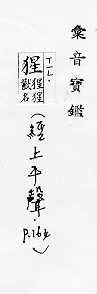 彙音寶鑑
ㄒㄧㄥ
猩 猩猩獸名
（經上平聲．P.164）